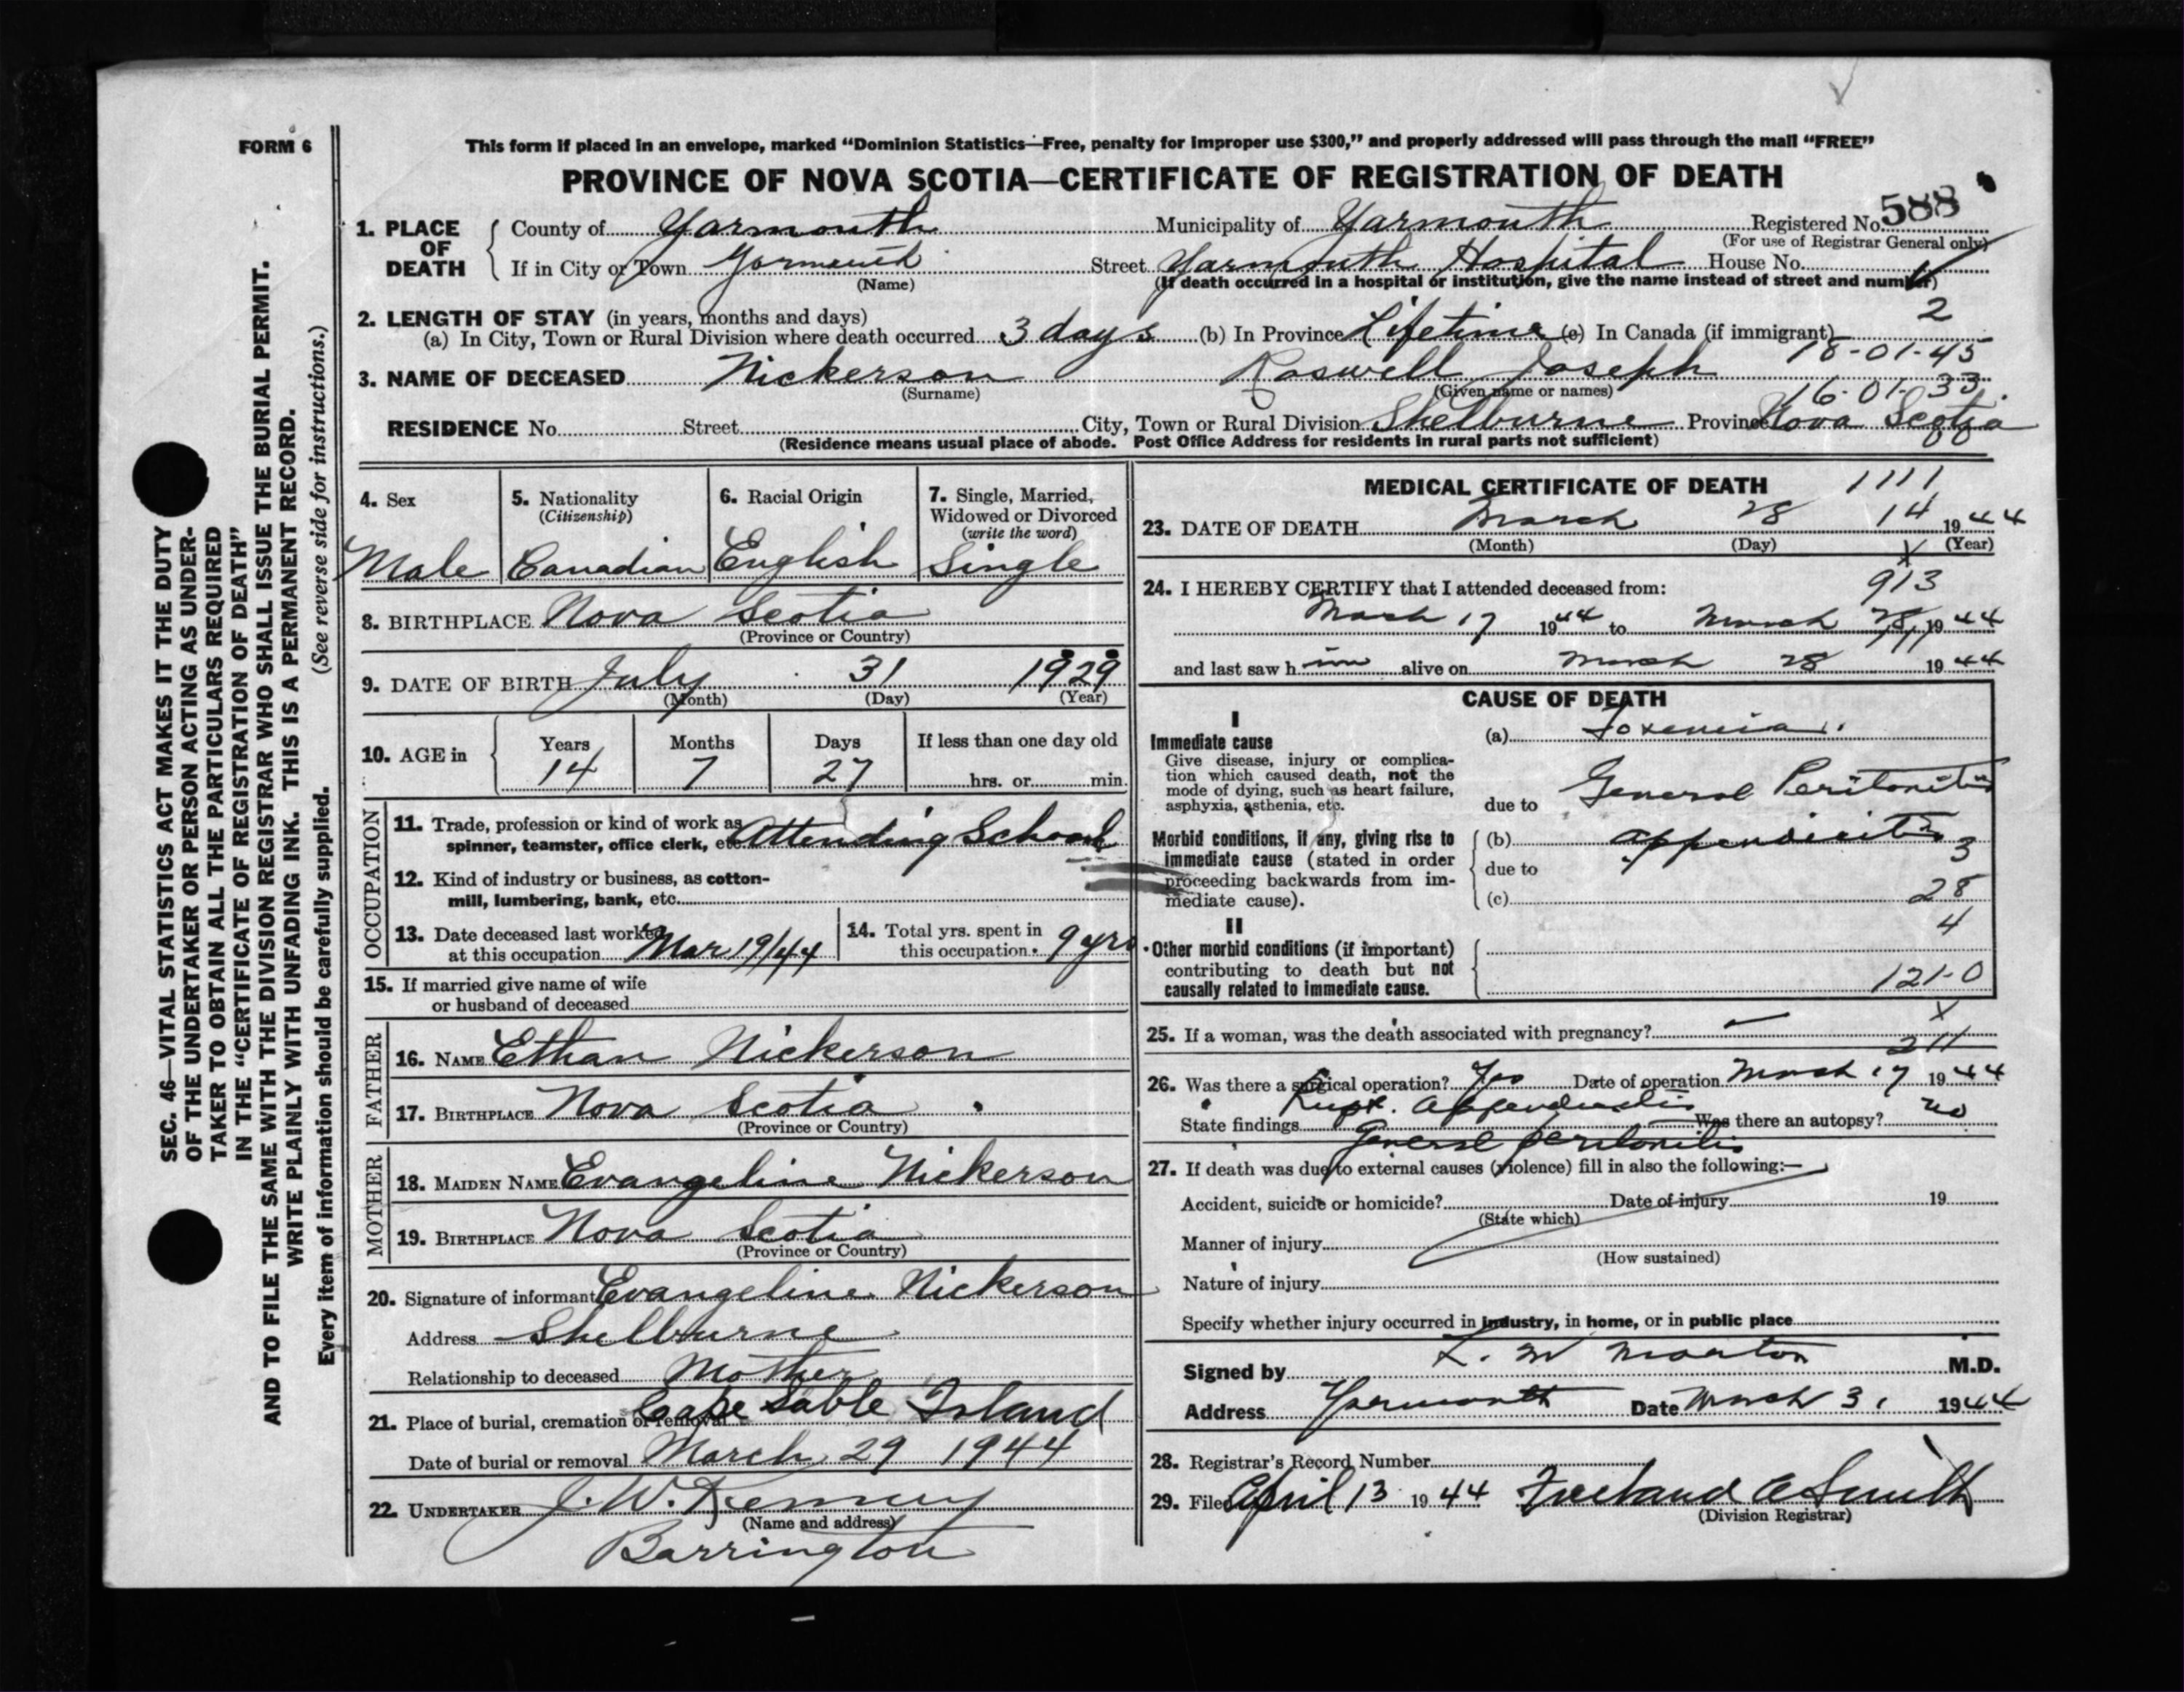 FORM 6
This form if placed in an envelope, marked “Dominion Statistics—Free, penalty for improper use $300,” and properly addressed will pass through the mail “FREE”
PROVINCE OF NOVA SCOTIA—CERTIFICATE OF REGISTRATION OF DEATH
1. PLACE OF DEATH County of Yarmouth Municipality of Yarmouth Registered No. 588
(For use of Registrar General only)
If in City or Town Yarmouth Street Yarmouth Hospital House No.
(Name) (If death occurred in a hospital or institution, give the name instead of street and number)
2. LENGTH OF STAY (in years, months and days) 2
(a) In City, Town or Rural Division where death occurred 3 days (b) In Province Lifetime (c) In Canada (if immigrant)
18-01-45
3. NAME OF DECEASED Nickerson Roswell Joseph
(Surname) (Given name or names) 16-01-33
RESIDENCE No. Street City, Town or Rural Division Shelburne Province Nova Scotia
(Residence means usual place of abode. Post Office Address for residents in rural parts not sufficient)
4. Sex 5. Nationality (Citizenship) 6. Racial Origin 7. Single, Married, Widowed or Divorced (write the word)
Male Canadian English Single
8. BIRTHPLACE Nova Scotia
(Province or Country)
9. DATE OF BIRTH July 31 1929
(Month) (Day) (Year)
10. AGE in Years Months Days If less than one day old
14 7 27 hrs. or min.
OCCUPATION
11. Trade, profession or kind of work as Attending School
spinner, teamster, office clerk, etc.
12. Kind of industry or business, as cotton-
mill, lumbering, bank, etc.
13. Date deceased last worked at this occupation Mar 19/44 14. Total yrs. spent in this occupation 9 yrs
15. If married give name of wife
or husband of deceased
FATHER
16. NAME Ethan Nickerson
17. BIRTHPLACE Nova Scotia
(Province or Country)
MOTHER
18. MAIDEN NAME Evangeline Nickerson
19. BIRTHPLACE Nova Scotia
(Province or Country)
20. Signature of informant Evangeline Nickerson
Address Shelburne
Relationship to deceased Mother
21. Place of burial, cremation or removal Cape Sable Island
Date of burial or removal March 29 1944
22. UNDERTAKER J. W. Kenney
(Name and address)
Barrington
MEDICAL CERTIFICATE OF DEATH 1111
14
23. DATE OF DEATH March 28 1944
(Month) (Day) (Year)
X
24. I HEREBY CERTIFY that I attended deceased from: 913
March 17 1944 to March 28 1944
and last saw him alive on March 28 1944
CAUSE OF DEATH
I
Immediate cause
Give disease, injury or complica-
tion which caused death, not the
mode of dying, such as heart failure,
asphyxia, asthenia, etc.
(a) Toxemia
due to General Peritonitis
Morbid conditions, if any, giving rise to
immediate cause (stated in order
proceeding backwards from im-
mediate cause).
(b) appendicitis
due to 3
(c) 28
4
II
Other morbid conditions (if important)
contributing to death but not
causally related to immediate cause.
121-0
X
25. If a woman, was the death associated with pregnancy? —
211
26. Was there a surgical operation? Yes Date of operation March 17 1944
State findings Rupt. Appendicitis Was there an autopsy? no
General peritonitis
27. If death was due to external causes (violence) fill in also the following:—
Accident, suicide or homicide? Date of injury 19
(State which)
Manner of injury
(How sustained)
Nature of injury
Specify whether injury occurred in industry, in home, or in public place
Signed by L. M Morton M.D.
Address Yarmouth Date March 31 1944
28. Registrar's Record Number
29. Filed April 13 1944 Freeland A Smith
(Division Registrar)
SEC. 46—VITAL STATISTICS ACT MAKES IT THE DUTY
OF THE UNDERTAKER OR PERSON ACTING AS UNDER-
TAKER TO OBTAIN ALL THE PARTICULARS REQUIRED
IN THE “CERTIFICATE OF REGISTRATION OF DEATH”
AND TO FILE THE SAME WITH THE DIVISION REGISTRAR WHO SHALL ISSUE THE BURIAL PERMIT.
WRITE PLAINLY WITH UNFADING INK. THIS IS A PERMANENT RECORD.
Every item of information should be carefully supplied. (See reverse side for instructions.)